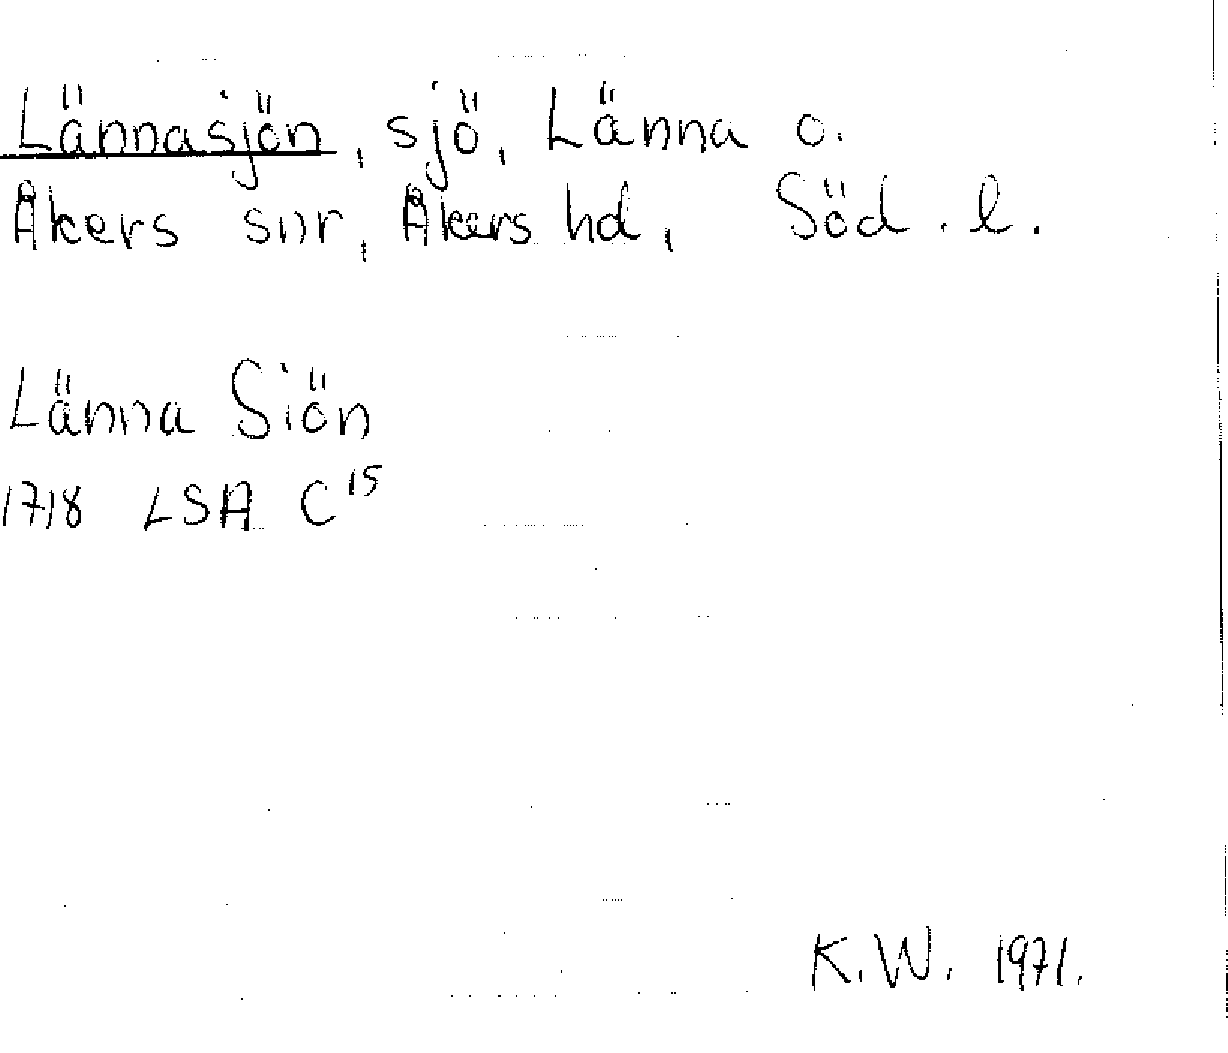 Lännasjön, sjö, Länna o.
Åkers snr, Åkers hd, Söd. l.
Länna Siön
1718 LSA C¹⁵
K.W. 1971.